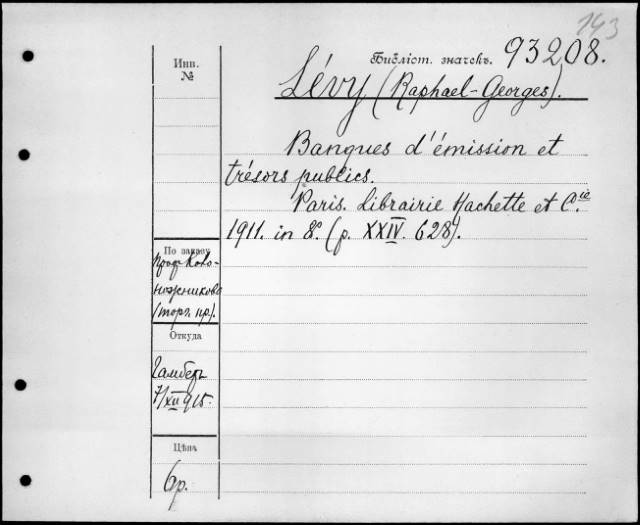 143
Инв.
№
Библіот. значекъ. 93208.
Lévy (Raphael-Georges).
Banques d'émission et
trésors publics.
Paris. Librairie Hachette et C.ie
1911. in 8°. (p. XXIV. 628).
По заказу
проф.
(торг. пр).
Откуда
7/XII 915.
Цѣна
6р.